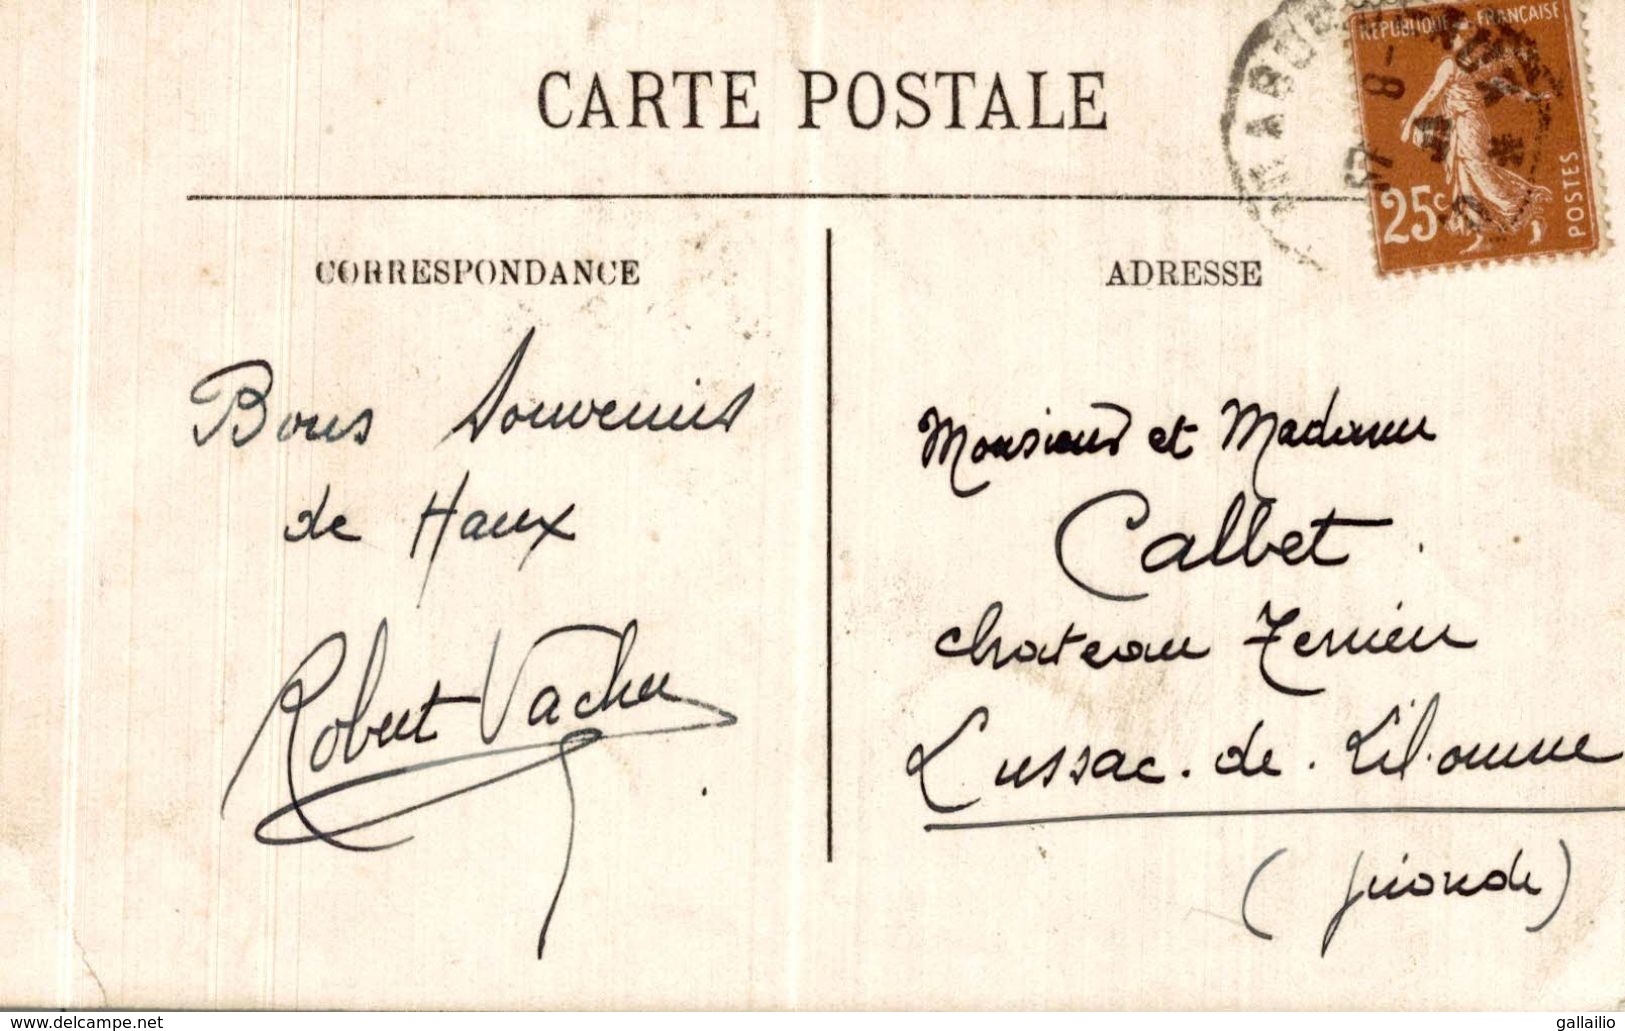 CARTE POSTALE
REPUBLIQUE FRANÇAISE
25c
POSTES
CORRESPONDANCE
Bons Souvenirs
de Haux
Robert Vacher
ADRESSE
Monsieur et Madame
Calbet
Chateau Terrien
Lussac-de-Libourne
(Gironde)
www.delcampe.net
gallailio